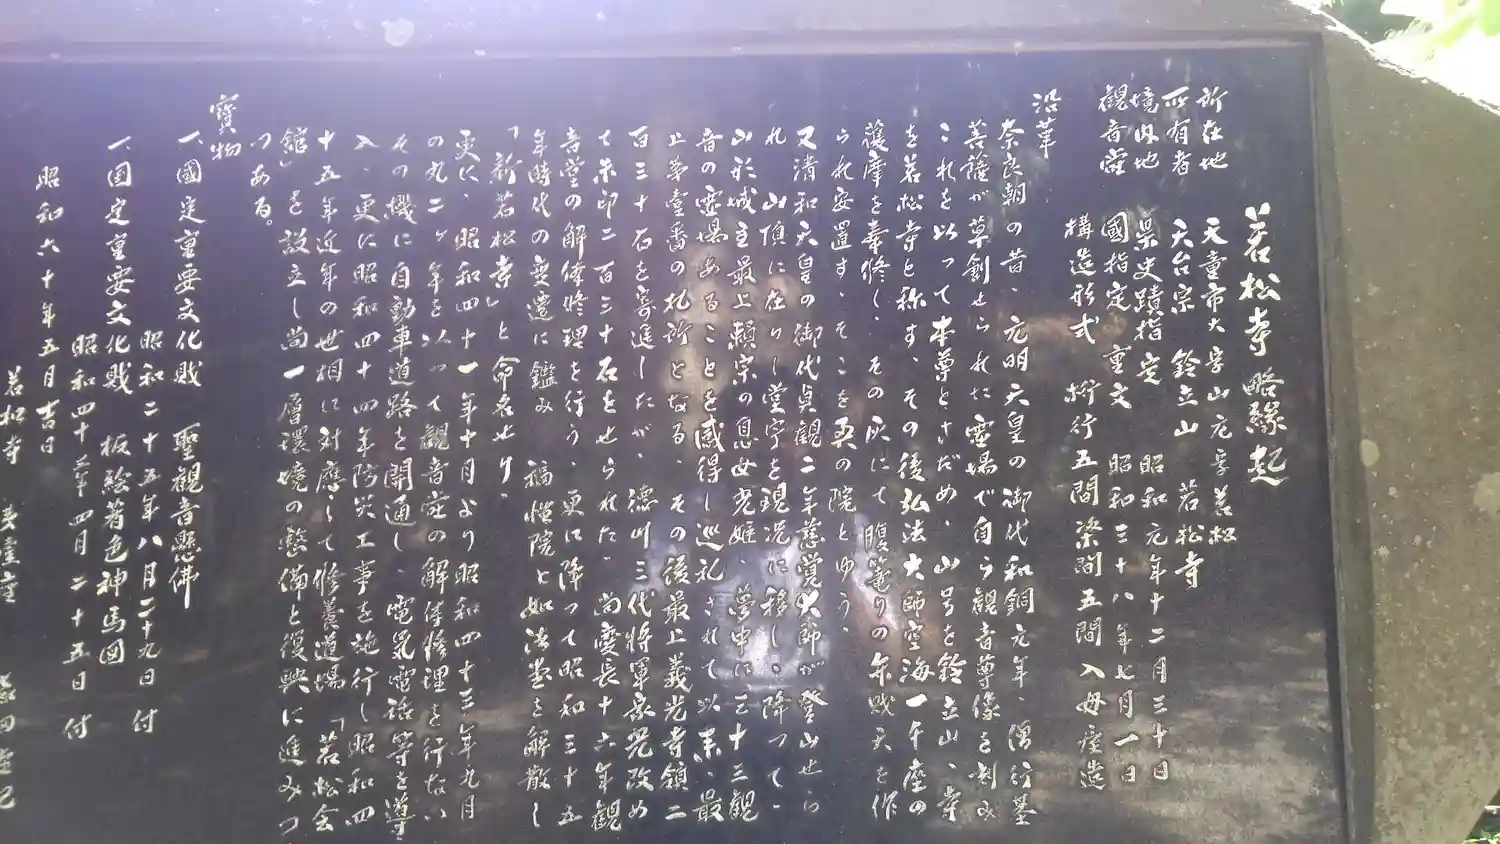 若松寺略縁起
所在地 天童市大字山元字若松
所有者 天台宗 鈴立山 若松寺
境内地 県史蹟指定 昭和元年十二月三十日
観音堂 國指定 重文 昭和三十八年七月一日
構造形式 桁行五間梁間五間入母屋造
沿革
奈良朝の昔、元明天皇の御代和銅元年、僧行基
菩薩が草創せられた霊場で自ら観音尊像を刻み
これを以って本尊とさだめ、山号を鈴立山、寺
を若松寺と称す、その後弘法大師空海一千座の
護摩を奉修し、その灰にて腹籠りの弁財天を作
られ安置す、そこを奥の院とゆう、
又清和天皇の御代貞観二年慈覚大師が登山せら
れ 山頂に在りし堂宇を現況に移し、降って、
山形城主最上頼宗の息女光姫、夢中に三十三観
音の霊場あることを感得し巡礼されて以来、最
上第壹番の札所となる、その後最上義光寺鎮二
百三十石を寄進したが、徳川三代将軍家光改め
て朱印二百三十石をせられた、尚慶長十六年観
音堂の解体修理を行う、更に降って昭和三十五
年時代の変遷に鑑み 福性院と如法堂を解散し
「新若松寺」と命名せり、
更に、昭和四十一年十月より昭和四十三年九月
の丸二ヶ年を以って観音堂の解体修理を行ない
その機に自動車道路を開通し、電気電話等を導
入、更に昭和四十四年防災工事を施行し昭和四
十五年近年の世相に対應して修養道場「若松会
館」を設立し尚一層環境の整備と復興に進みつ
つある。
寳物
一、國定重要文化財 聖観音懸佛
昭和二十五年八月二十九日 付
一、国定重要文化財 板絵著色神馬図
昭和四十 年四月二十五日 付
昭和六十年五月吉日
若松寺